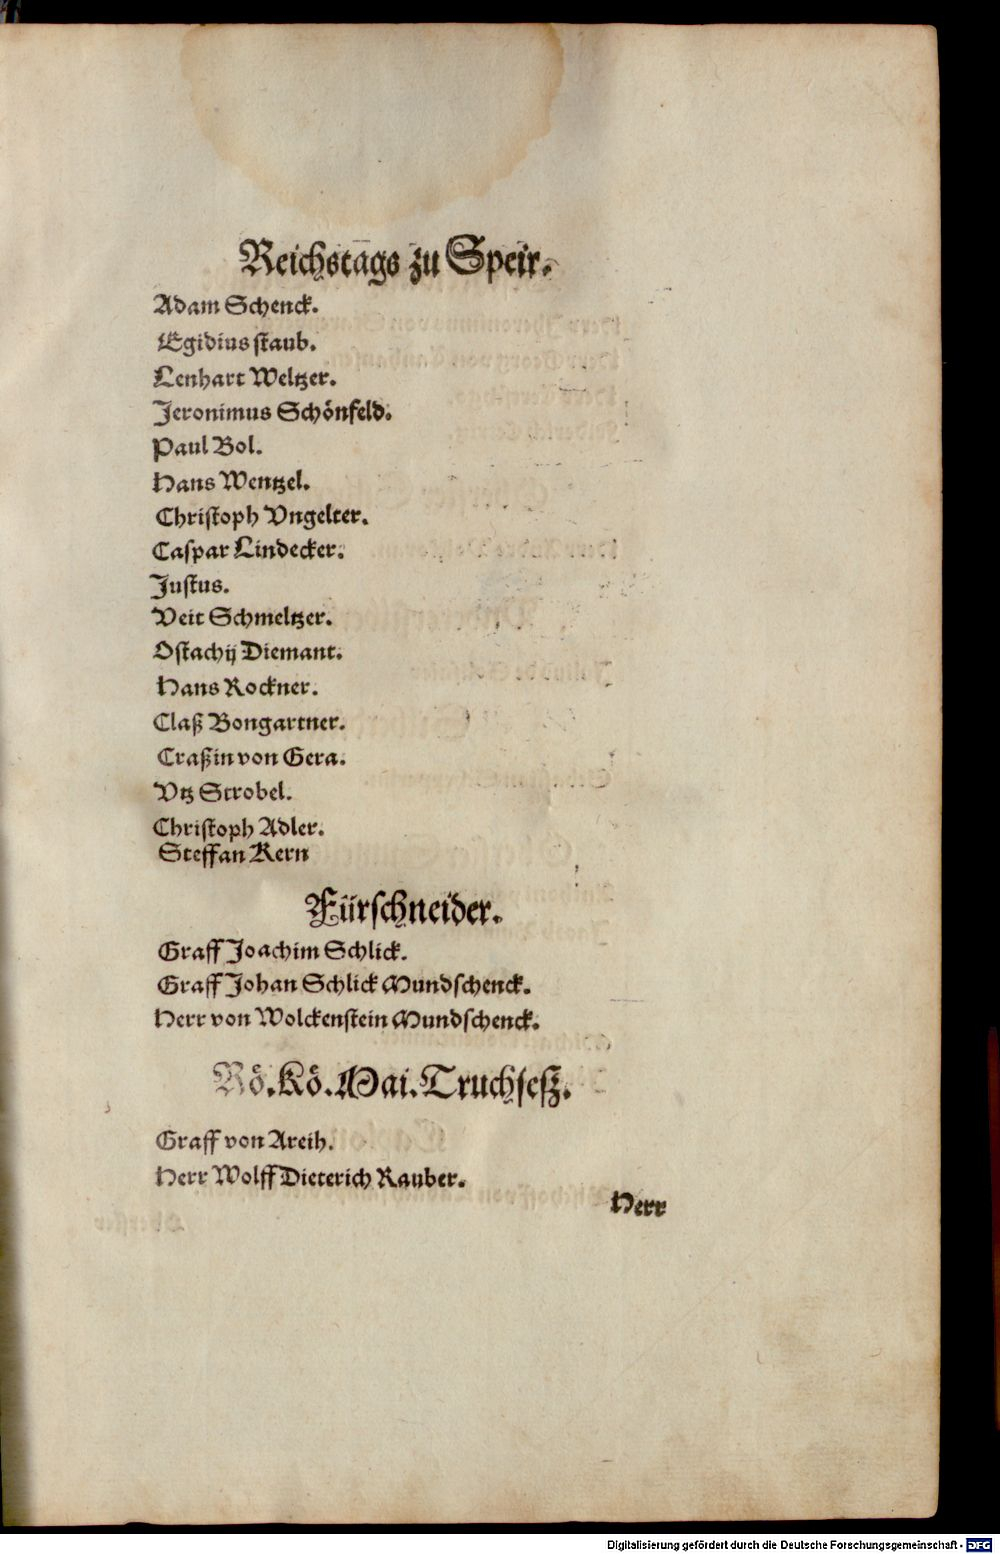 Reichstags zu Speir.
Adam Schenck.
Egidius staub.
Lenhart Weltzer.
Jeronimus Schönfeld.
Paul Bol.
Hans Wentzel.
Christoph Vngelter.
Caspar Lindecker.
Justus.
Veit Schmeltzer.
Ostachij Diemant.
Hans Rockner.
Claß Bongartner.
Craßin von Gera.
Vtz Strobel.
Christoph Adler.
Steffan Kern
Fürschneider.
Graff Joachim Schlick.
Graff Johan Schlick Mundschenck.
Herr von Wolckenstein Mundschenck.
Rö. Kö. Mai. Truchseß.
Graff von Areih.
Herr Wolff Dieterich Rauber.
Herr
Digitalisierung gefördert durch die Deutsche Forschungsgemeinschaft - DFG